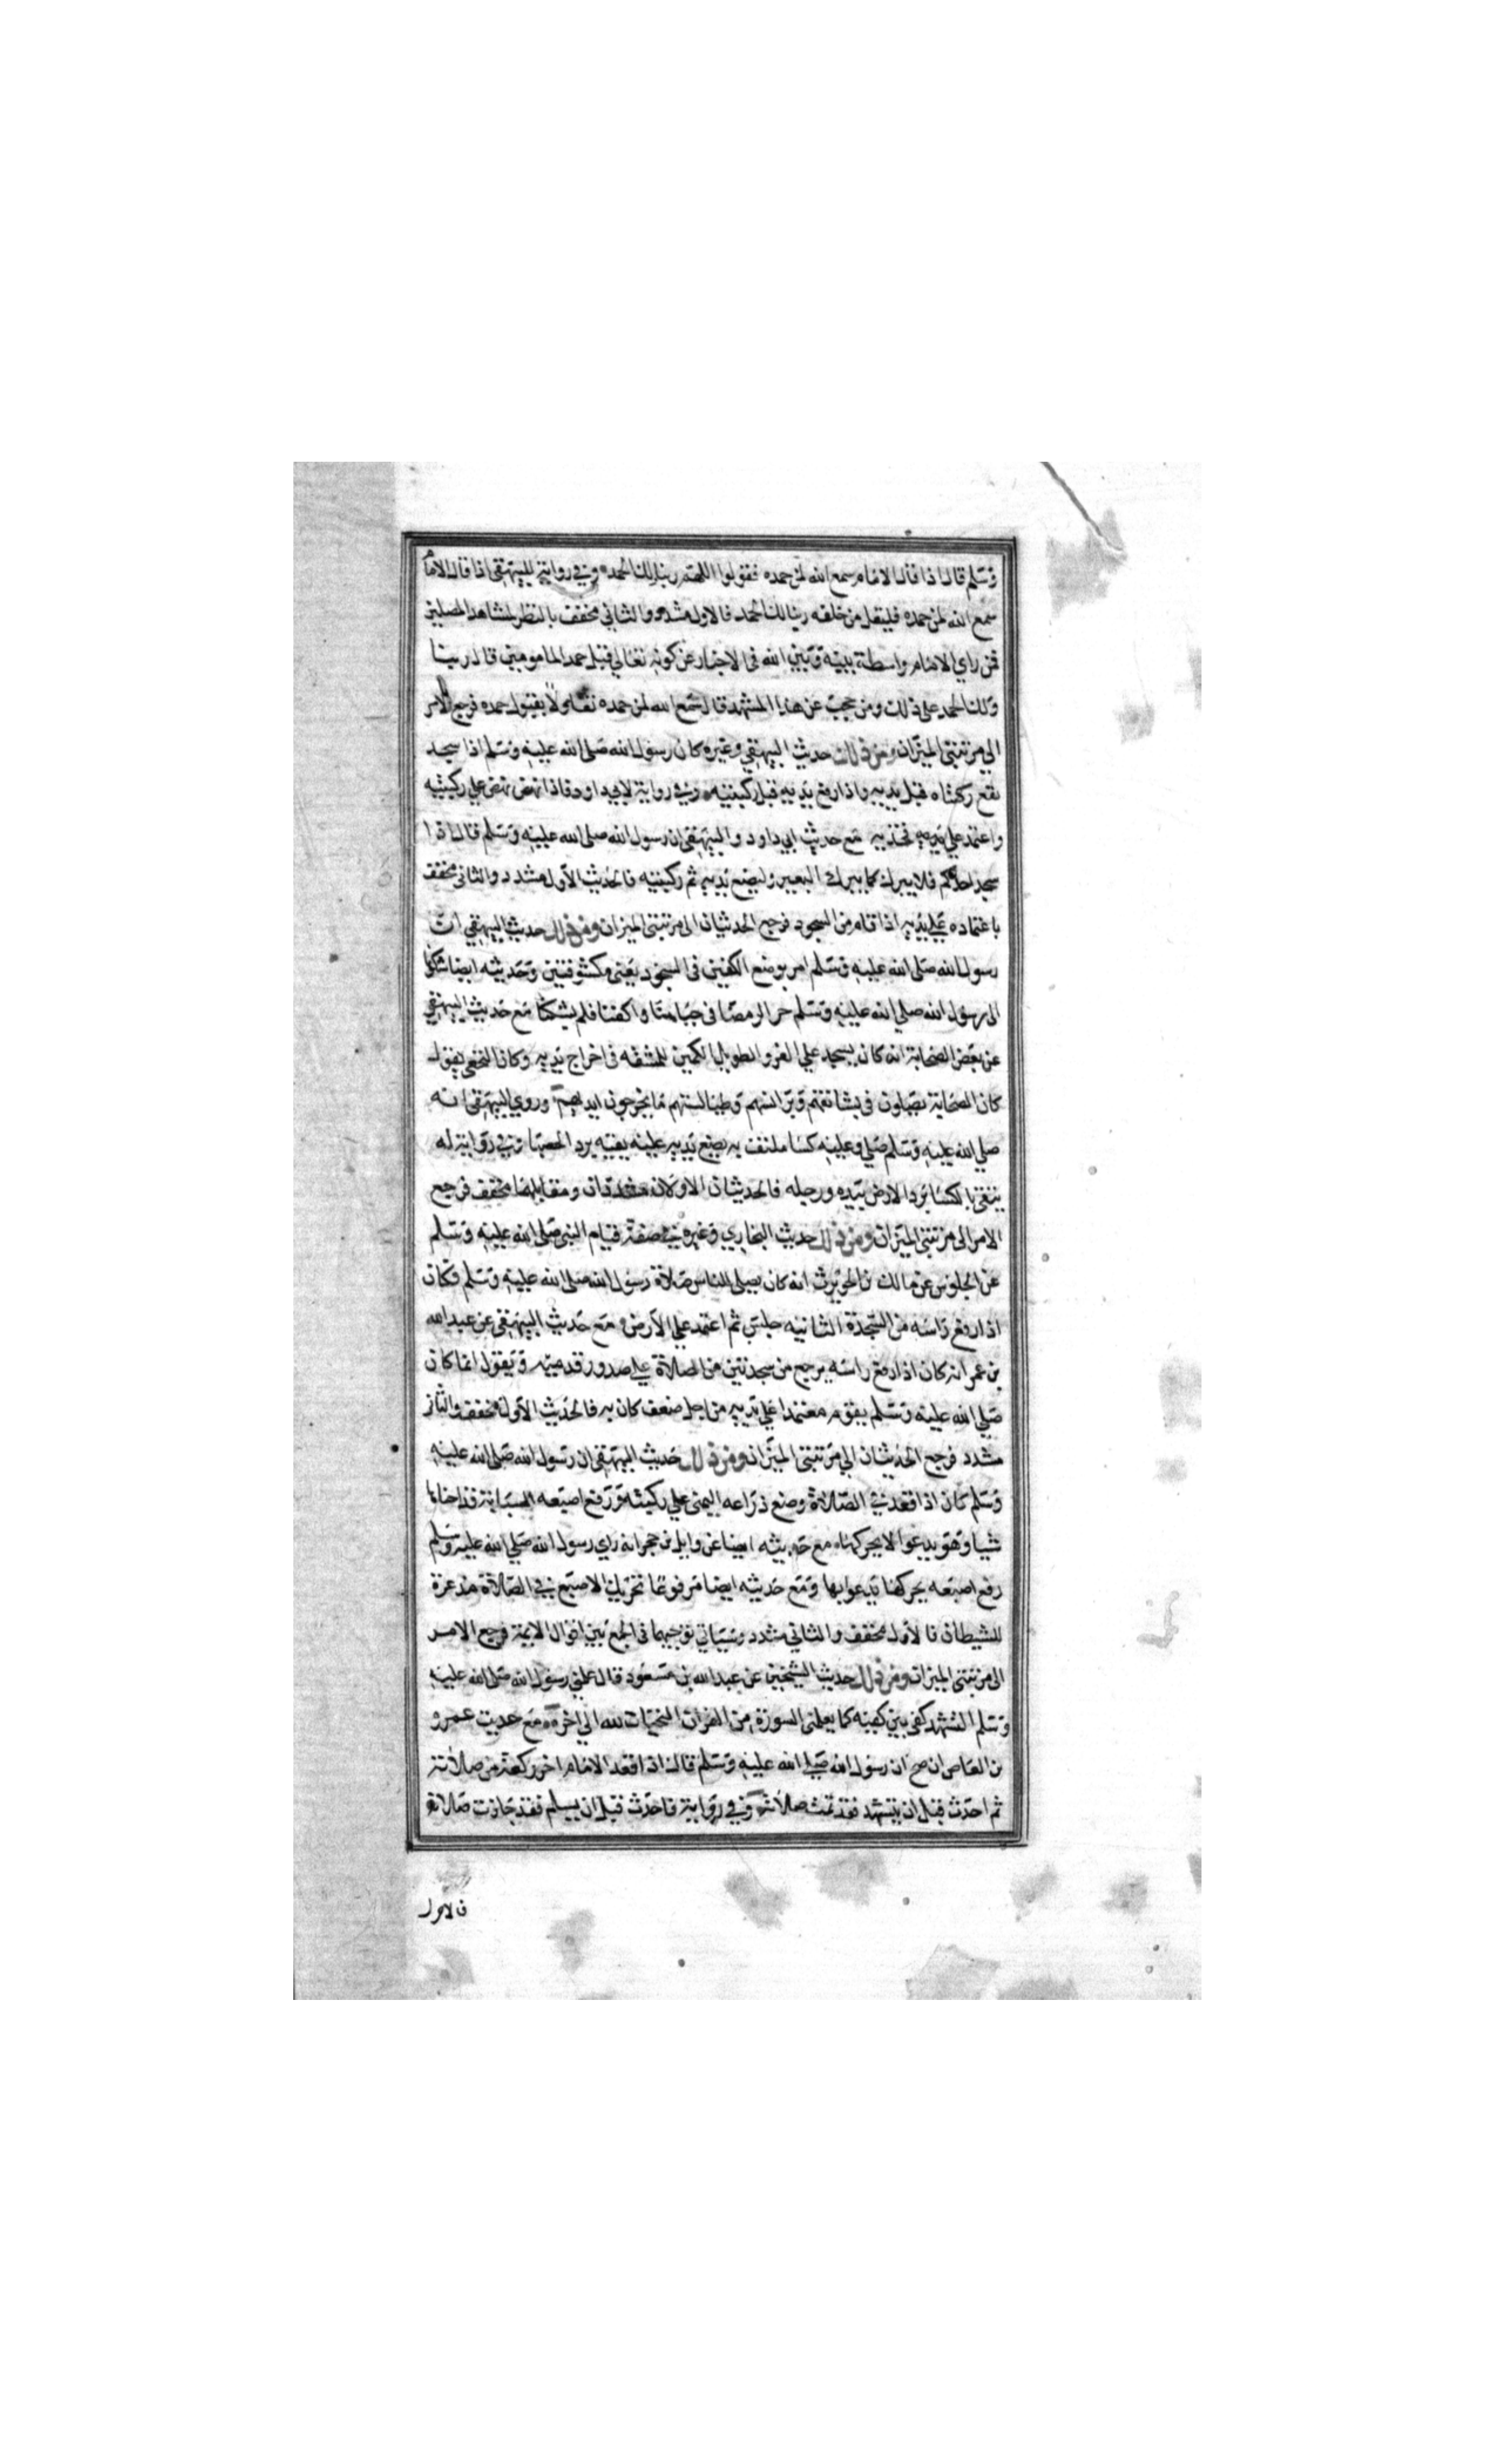 وسلم قال اذا قال الامام سمع الله لمن حمده فقولوا اللهم ربنا لك الحمد وفي رواية للبيهقي اذا قال الامام
سمع الله لمن حمده فليقل من خلفه ربنا لك الحمد فالاول مشدد والثاني مخفف بالنظر لمشاهد المصلين
فمن راي الامام واسطة بينه وبين الله في الاخبار عن كونه تعالي قبل حمد المامومين قال ربنا
ولك الحمد علي ذلك ومن حجب عن هذا المشهد قال سمع الله لمن حمده تفاولا بقبول حمده فرجع الامر
الي مرتبتي الميزان ومن ذلك حديث البيهقي وغيره كان رسول الله صلي الله عليه وسلم اذا سجد
تقع ركبتاه قبل يديه واذا رفع يديه قبل ركبتيه وفي رواية لابي داود فاذا نهض نهض علي ركبتيه
واعتمد علي فخذيه مع حديث ابي داود والبيهقي ان رسول الله صلي الله عليه وسلم قال اذا
سجد احدكم فلا يبرك كما يبرك البعير وليضع يديه ثم ركبتيه فالحديث الاول مشدد والثاني مخفف
باعتماده علي يديه اذا قام من السجود فرجع الحديثان الي مرتبتي الميزان ومن ذلك حديث البيهقي ان
رسول الله صلي الله عليه وسلم امر بوضع الكفين في السجود يعني مكشوفتين وحديثه ايضا شكونا
الي رسول الله صلي الله عليه وسلم حر الرمضا في جباهنا واكفنا فلم يشكنا مع حديث البيهقي
عن بعض الصحابة انه كان يسجد علي الفرو الطويل الكمين للمشقة في اخراج يديه وكان النخعي يقول
كان الصحابة يصلون في مساتقهم وبرانسهم وطيالستهم ما يخرجون ايديهم وروي البيهقي انه
صلي الله عليه وسلم صلي وعليه كسا ملتف به يضع يديه عليه يقيه برد الحصبا وفي رواية له
يتقي بالكسا برد الارض بيده ورجله فالحديثان الاولان مشددان ومقابلهما مخفف فرجع
الامر الي مرتبتي الميزان ومن ذلك حديث البخاري وغيره في صفة قيام النبي صلي الله عليه وسلم
عن الجلوس عن مالك بن الحويرث انه كان يصلي للناس صلاة رسول الله صلي الله عليه وسلم فكان
اذا رفع راسه من السجدة الثانية جلس ثم اعتمد علي الارض مع حديث البيهقي عن عبد الله
بن عمر انه كان اذا رفع راسه يرجع من سجدتين من الصلاة علي صدور قدميه ويقول انما كان
صلي الله عليه وسلم يقوم معتمدا علي يديه من اجل ضعف كان به فالحديث الاول مخفف والثاني
مشدد فرجع الحديثان الي مرتبتي الميزان ومن ذلك حديث البيهقي ان رسول الله صلي الله عليه
وسلم كان اذا قعد في الصلاة وضع ذراعه اليمني علي ركبته ورفع اصبعه السبابة قد احناها
شيا وهو يدعوا لا يحركها مع حديثه ايضا عن وايل بن حجر انه راي رسول الله صلي الله عليه وسلم
رفع اصبعه يحركها يدعوا بها ومع حديثه ايضا مرفوعا تحريك الاصبع في الصلاة مذعرة
للشيطان فالاول مخفف والثاني مشدد وسياتي توجيهما في الجمع بين اقوال الايمة فرجع الامر
الي مرتبتي الميزان ومن ذلك حديث الشيخين عن عبد الله بن مسعود قال علمني رسول الله صلي الله عليه
وسلم التشهد كفي بين كفيه كما يعلمني السورة من القران التحيات لله الي اخره مع حديث عمرو
بن العاص ان صح ان رسول الله صلي الله عليه وسلم قال اذا قعد الامام اخر ركعة من صلاته
ثم احدث قبل ان يتشهد فقد تمت صلاته وفي رواية فاحدث قبل ان يسلم فقد جازت صلاته
فالاول